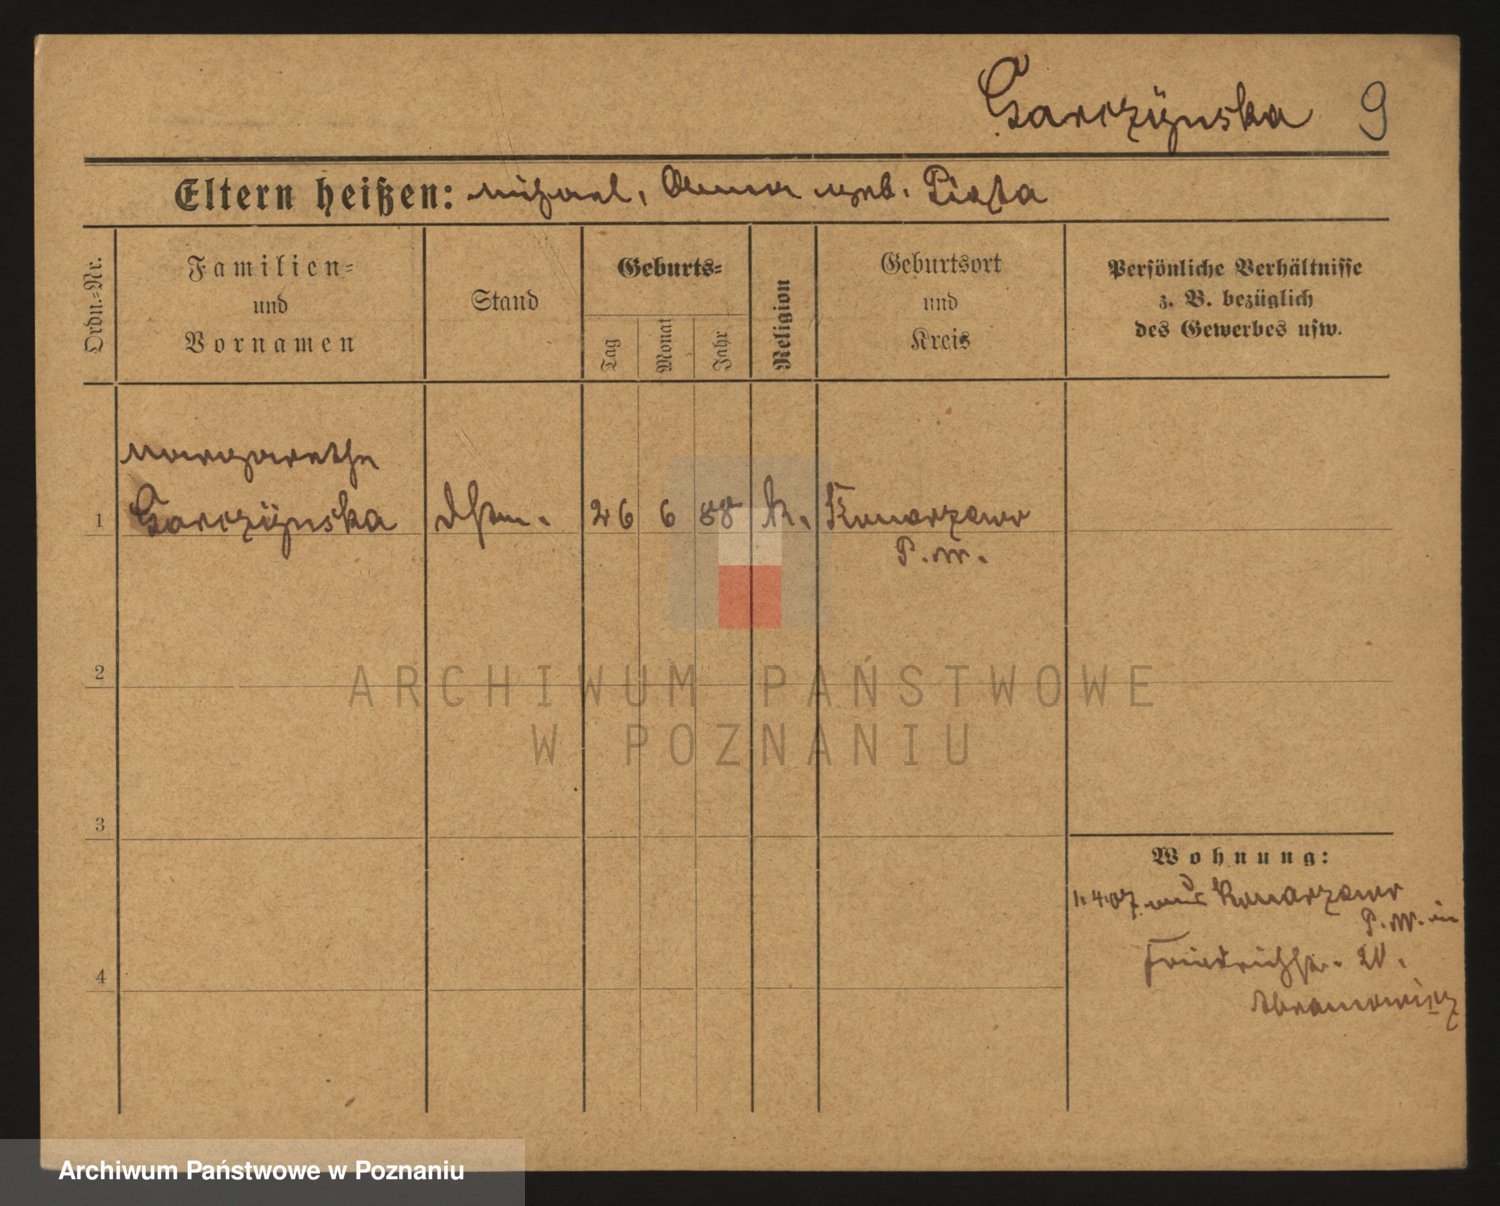 Garczÿnska 9
Eltern heißen: Michael, Anna geb. Piasta
Ordn.-Nr.
Familien-
und
Vornamen
Stand
Geburts-
Tag
Monat
Jahr
Religion
Geburtsort
und
Kreis
Persönliche Verhältnisse
z. B. bezüglich
des Gewerbes usw.
Margarethe
1 Garczÿnska 26 6 88 k. Konarzewo
P. W.
ARCHIWUM PAŃSTWOWE
W POZNANIU
2
3
4
Wohnung:
1.4.07. aus Konarzewo
P. W. in
Friedrichstr. 20.
Abramowicz
Archiwum Państwowe w Poznaniu